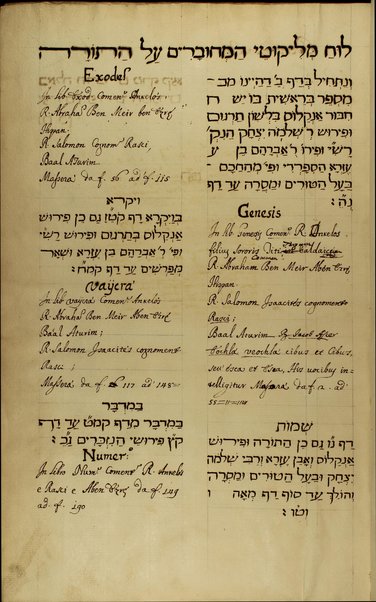 לוח מליקוטי המחוברים על התורה
ונתחיל בדף ב' דהיינו מב
מספר בראשית בו יש ח
חבור אנקלוס בלשון תרגום
ופירוש ר' שלמה יצחק הנק'
רש"י ופירו' ר' אברהם בן ע
עזרא הספרדי ופי' מהחכם
בעל הטורים ומסרה עד דף
נה:
Genesis
In lib Genesis Comenr. R. Onkelos
filius Sororis Titi Caldaice
R. Abraham Ben Meir Aben Ezre
Hyspan:
R. Salomon Isaacites cognoment
Rasci;
Baal Aturim
cibus et Cibus,
seu esca et Esca, Has vocibus in=
telligitur Massera da f. 2. ad.
55
שמות
דף נו גם כן התורה ופירוש
אנקלוס ואבן עזרא ורבי שלמה
יצחק ובעל הטורים ומסרה
והולך עד סוף דף מאה ו
וטו:
Exodes
In lib Exod. Comenr. Onkelos
R. Abraham Ben Meir ben Ezre
Hyspan:
R. Salomon Cognom. Rasci,
Baal Aturim.
Massera da f. 56 ad f. 115
ויקרא
בויקרא דף קטז גם כן פירוש
אנקלוס בתרגום ופירוש רשי
ופי' ר' אברהם בן עזרא ושאר
מפרשים עד דף קמח:
Vaycra
In lib vaycra Comenr. Onkelos
R. Abraham Ben Meir Aben Ezre
Baal Aturim;
R. Salomon Isaacites cognoment
Rasci;
Massera da f. 117 ad 148
במדבר
במדבר מדף קמט עד דף
קץ פירושי הנזכרים גכ:
Numer.
In libro Num. Coment. R. Onkelos
e Rasci e Aben Ezre da f. 149
ad f. 190